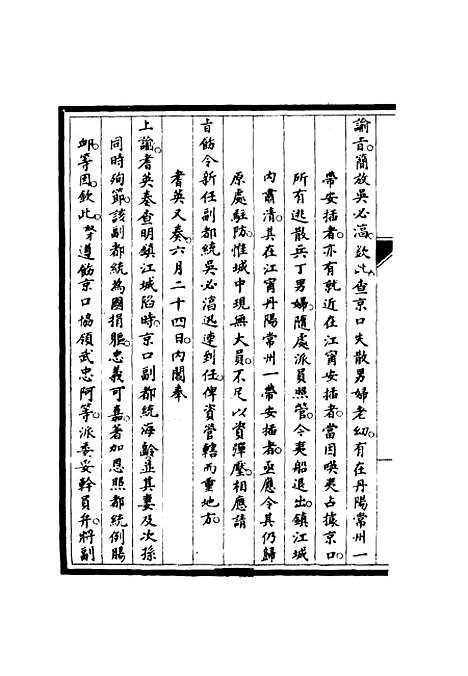 諭旨。簡放吳必淳。欽此。查京口失散男婦老幼。有在丹陽常州一
帶安插者。亦有就近在江甯安插者。當因㗸夷占據京口。
所有逃散兵丁男婦。隨處派員照管。今夷船退出。鎮江城
內肅清。其在江甯丹陽常州一帶安插者。亟應令其仍歸
原處駐防。惟城中現無大員。不足以資彈壓。相應請
旨飭令新任副都統吳必淳迅速到任。俾資管轄而重地方。
耆英又奏。六月二十四日。內閣奉
上諭。耆英奏查明鎮江城陷時。京口副都統海齡並其妻及次孫
同時殉節。該副都統為國捐軀。忠義可嘉。著加恩照都統例賜
卹。等因。欽此。奴才遵飭京口協領武忠阿等。派委妥幹員弁。將副